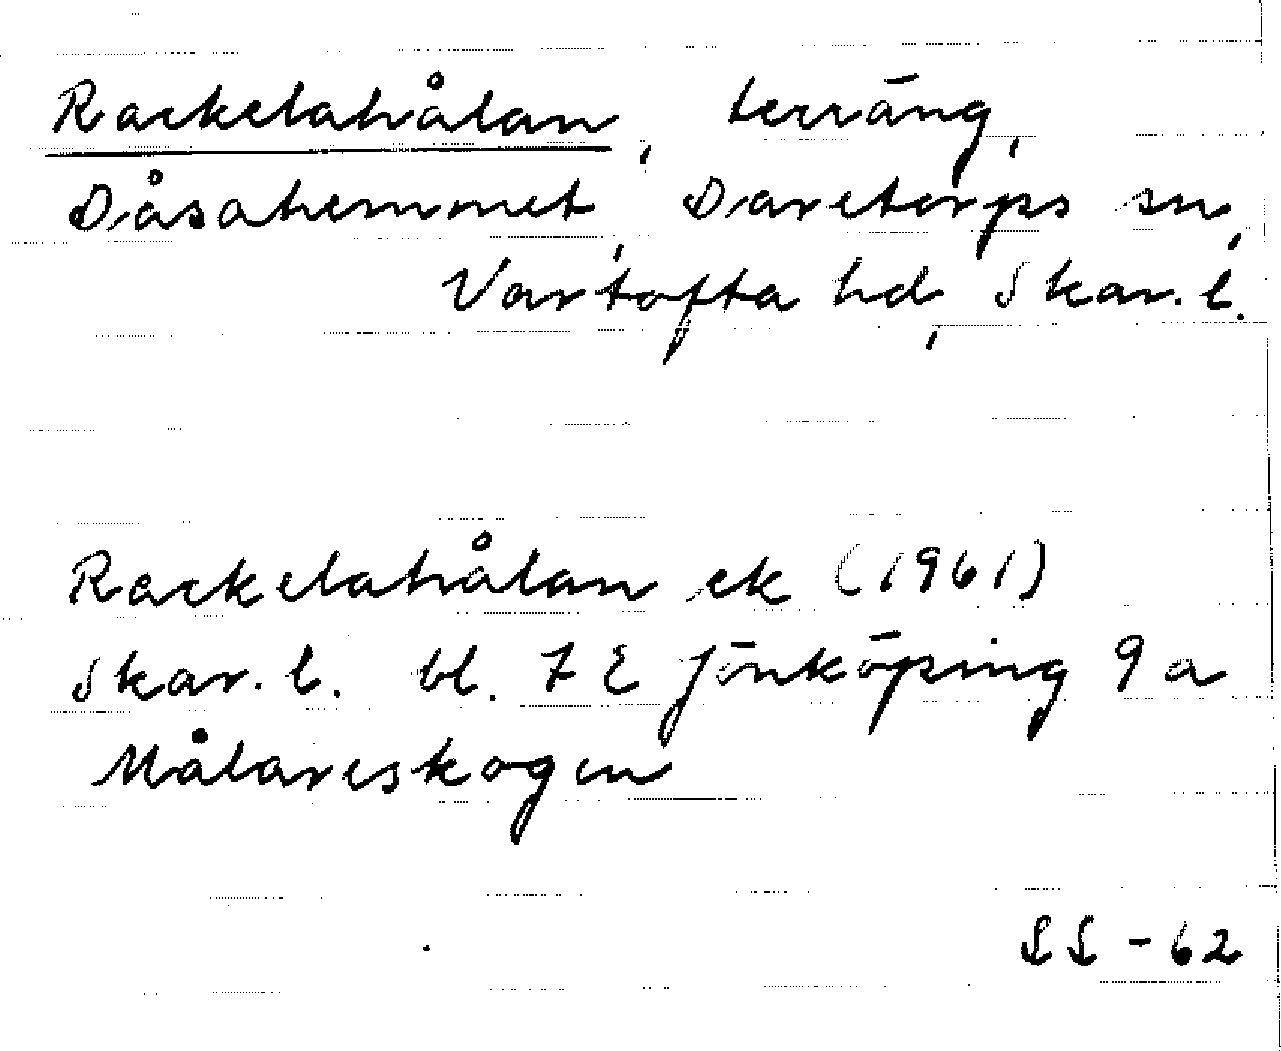 Rackelahålan, terräng,
Dåsahemmet, Daretorps sn,
Vartofta hd, Skar. l.
Rackelahålan ek (1961)
Skar. l. bl. 7 E Jönköping 9 a
Målareskogen
SS - 62